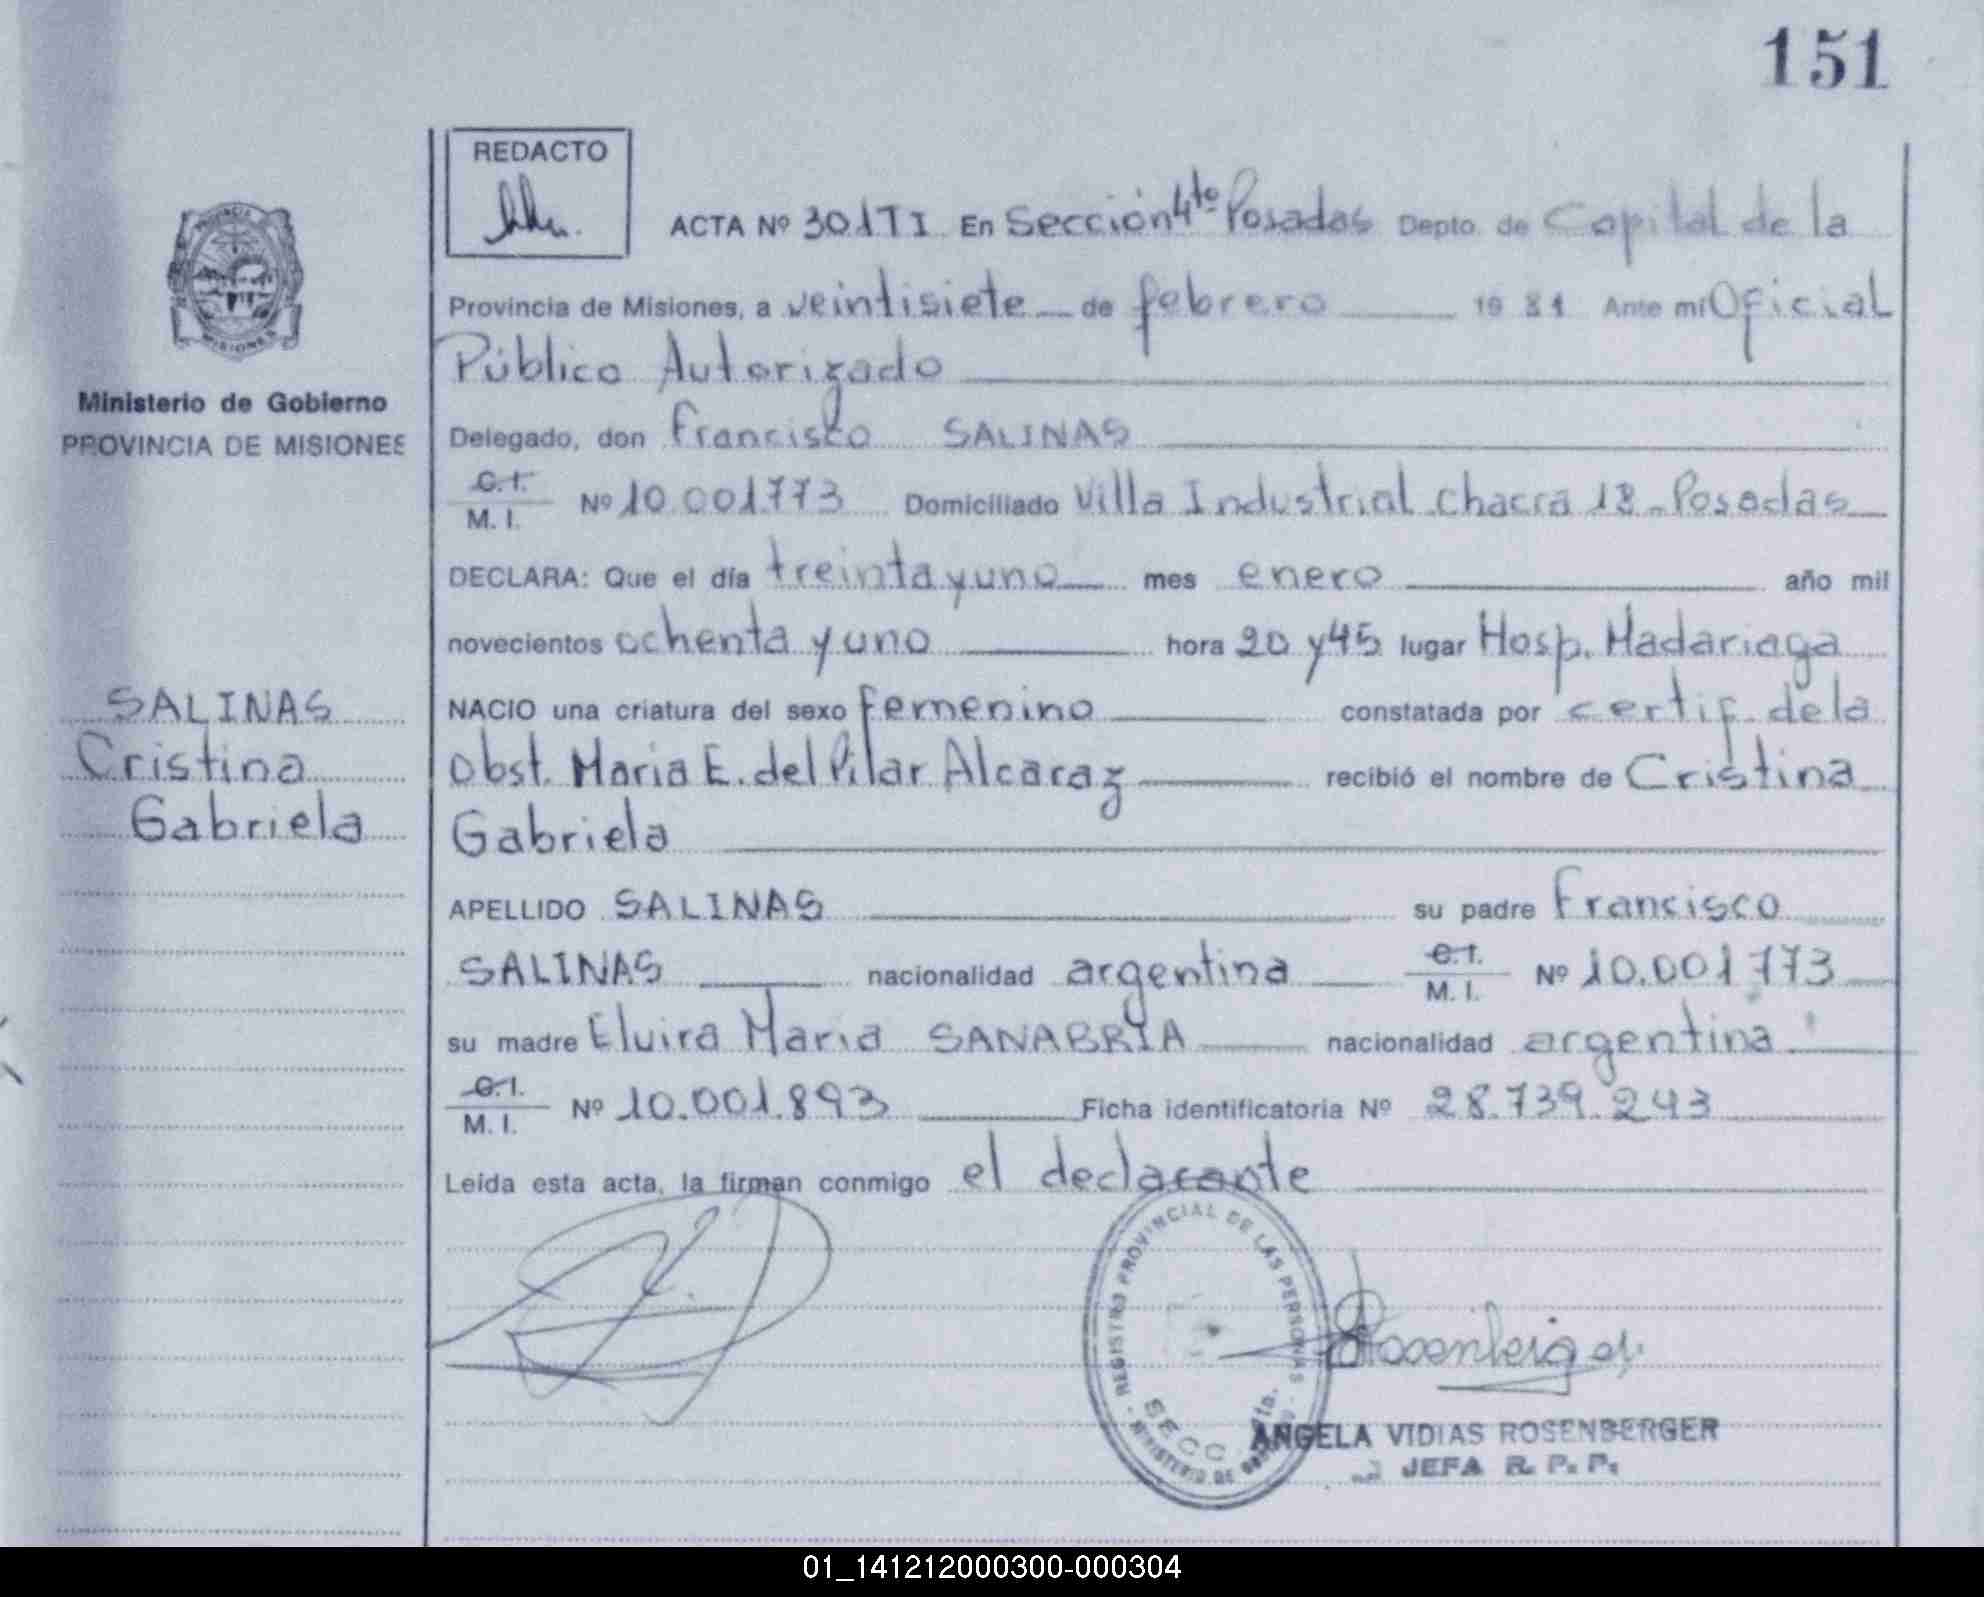 151
REDACTO
ACTA Nº 301TI En Sección 4to Posadas Depto. de Capital de la
Provincia de Misiones, a veintisiete de febrero 1981 Ante mí Oficial
Público Autorizado
Ministerio de Gobierno
PROVINCIA DE MISIONES
Delegado, don Francisco SALINAS
C.I.
M. I. Nº 10.001.773 Domiciliado Villa Industrial Chacra 18 - Posadas
DECLARA: Que el día treinta y uno mes enero año mil
novecientos ochenta y uno hora 20 y 45 lugar Hosp. Madariaga
SALINAS
Cristina
Gabriela
NACIO una criatura del sexo femenino constatada por certif. de la
Obst. Maria E. del Pilar Alcaraz recibió el nombre de Cristina
Gabriela
APELLIDO SALINAS su padre Francisco
SALINAS nacionalidad argentina C.I. M. I. Nº 10.001.773
su madre Elvira Maria SANABRIA nacionalidad argentina
C.I.
M. I. Nº 10.001.893 Ficha identificatoria Nº 28.739.243
Leída esta acta, la firman conmigo el declarante
REGISTRO PROVINCIAL DE LAS PERSONAS
SECC 4ta.
MINISTERIO DE
ANGELA VIDIAS ROSENBERGER
JEFA R. P. P.
01_141212000300-000304